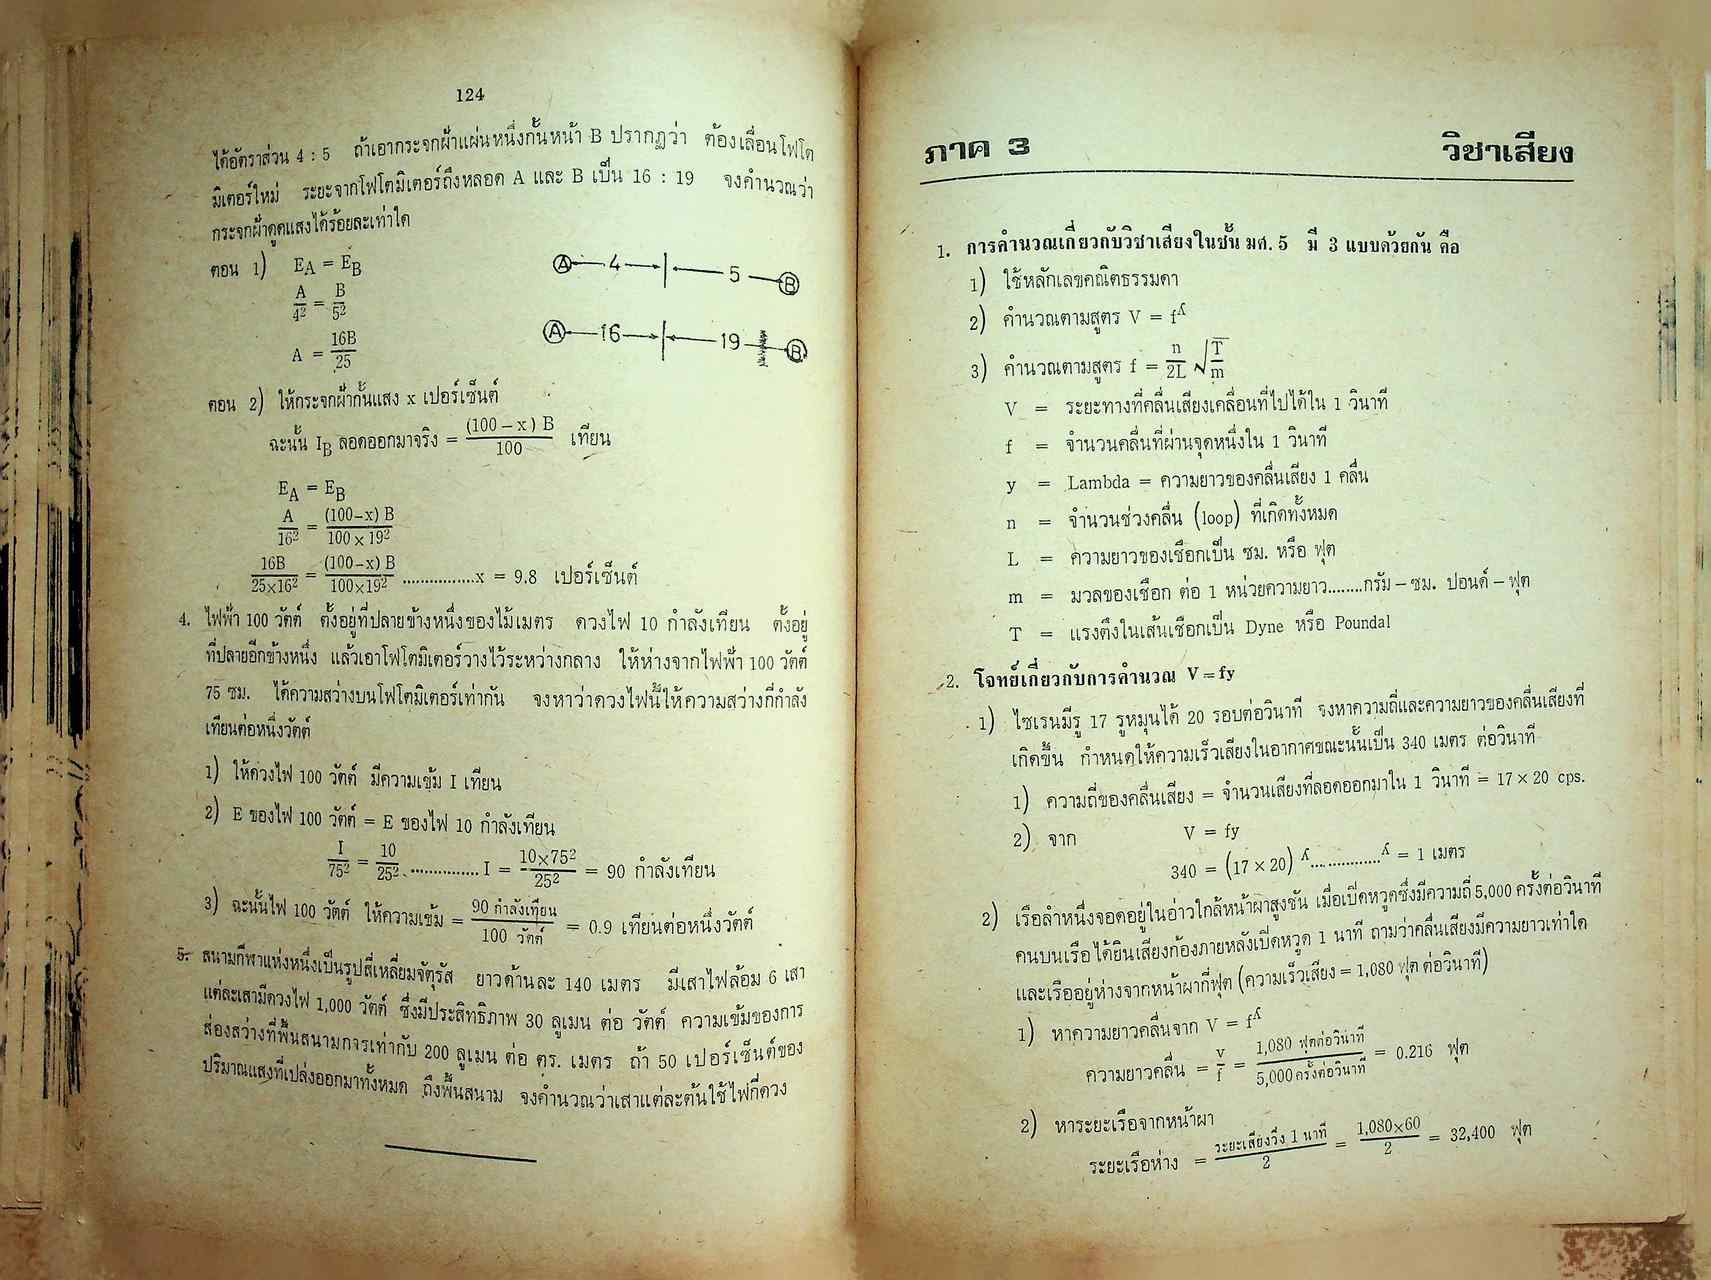 124
ได้อัตราส่วน 4 : 5 ถ้าเอากระจกฝ้าแผ่นหนึ่งกั้นหน้า B ปรากฏว่า ต้องเลื่อนโฟโต
มิเตอร์ใหม่ ระยะจากโฟโตมิเตอร์ถึงหลอด A และ B เป็น 16 : 19 จงคำนวณว่า
กระจกฝ้าดูดแสงได้ร้อยละเท่าใด
ตอน 1) E_A = E_B
A/4² = B/5²
A = 16B/25
A 4 5 B
A 16 19 B
ตอน 2) ให้กระจกฝ้ากั้นแสง x เปอร์เซ็นต์
ฉะนั้น I_B ลอดออกมาจริง = (100 – x) B/100 เทียน
E_A = E_B
A/16² = (100–x) B/100 × 19²
16B/25×16² = (100–x) B/100×19² ...............x = 9.8 เปอร์เซ็นต์
4. ไฟฟ้า 100 วัตต์ ตั้งอยู่ที่ปลายข้างหนึ่งของไม้เมตร ดวงไฟ 10 กำลังเทียน ตั้งอยู่
ที่ปลายอีกข้างหนึ่ง แล้วเอาโฟโตมิเตอร์วางไว้ระหว่างกลาง ให้ห่างจากไฟฟ้า 100 วัตต์
75 ซม. ได้ความสว่างบนโฟโตมิเตอร์เท่ากัน จงหาว่าดวงไฟนี้ให้ความสว่างกี่กำลัง
เทียนต่อหนึ่งวัตต์
1) ให้ดวงไฟ 100 วัตต์ มีความเข้ม I เทียน
2) E ของไฟ 100 วัตต์ = E ของไฟ 10 กำลังเทียน
I/75² = 10/25² ............... I = 10×75²/25² = 90 กำลังเทียน
3) ฉะนั้นไฟ 100 วัตต์ ให้ความเข้ม = 90 กำลังเทียน/100 วัตต์ = 0.9 เทียนต่อหนึ่งวัตต์
5. สนามกีฬาแห่งหนึ่งเป็นรูปสี่เหลี่ยมจัตุรัส ยาวด้านละ 140 เมตร มีเสาไฟล้อม 6 เสา
แต่ละเสามีดวงไฟ 1,000 วัตต์ ซึ่งมีประสิทธิภาพ 30 ลูเมน ต่อ วัตต์ ความเข้มของการ
ส่องสว่างที่พื้นสนามการเท่ากับ 200 ลูเมน ต่อ ตร. เมตร ถ้า 50 เปอร์เซ็นต์ของ
ปริมาณแสงที่เปล่งออกมาทั้งหมด ถึงพื้นสนาม จงคำนวณว่าเสาแต่ละต้นใช้ไฟกี่ดวง
ภาค 3 วิชาเสียง
1. การคำนวณเกี่ยวกับวิชาเสียงในชั้น มศ. 5 มี 3 แบบด้วยกัน คือ
1) ใช้หลักเลขคณิตธรรมดา
2) คำนวณตามสูตร V = fλ
3) คำนวณตามสูตร f = n/2L √T/m
V = ระยะทางที่คลื่นเสียงเคลื่อนที่ไปได้ใน 1 วินาที
f = จำนวนคลื่นที่ผ่านจุดหนึ่งใน 1 วินาที
y = Lambda = ความยาวของคลื่นเสียง 1 คลื่น
n = จำนวนช่วงคลื่น (loop) ที่เกิดทั้งหมด
L = ความยาวของเชือกเป็น ซม. หรือ ฟุต
m = มวลของเชือก ต่อ 1 หน่วยความยาว........กรัม – ซม. ปอนด์ – ฟุต
T = แรงตึงในเส้นเชือกเป็น Dyne หรือ Poundal
2. โจทย์เกี่ยวกับการคำนวณ V = fy
1) ไซเรนมีรู 17 รูหมุนได้ 20 รอบต่อวินาที จงหาความถี่และความยาวของคลื่นเสียงที่
เกิดขึ้น กำหนดให้ความเร็วเสียงในอากาศขณะนั้นเป็น 340 เมตร ต่อวินาที
1) ความถี่ของคลื่นเสียง = จำนวนเสียงที่ลอดออกมาใน 1 วินาที = 17 × 20 cps.
2) จาก V = fy
340 = (17 × 20) λ...............λ = 1 เมตร
2) เรือลำหนึ่งจอดอยู่ในอ่าวใกล้หน้าผาสูงชัน เมื่อเปิดหวูดซึ่งมีความถี่ 5,000 ครั้งต่อวินาที
คนบนเรือได้ยินเสียงก้องภายหลังเปิดหวูด 1 นาที ถามว่าคลื่นเสียงมีความยาวเท่าใด
และเรืออยู่ห่างจากหน้าผากี่ฟุต (ความเร็วเสียง = 1,080 ฟุตต่อวินาที)
1) หาความยาวคลื่นจาก V = fλ
ความยาวคลื่น = v/f = 1,080 ฟุตต่อวินาที/5,000 ครั้งต่อวินาที = 0.216 ฟุต
2) หาระยะเรือจากหน้าผา
ระยะเรือห่าง = ระยะเสียงวิ่ง 1 นาที/2 = 1,080×60/2 = 32,400 ฟุต